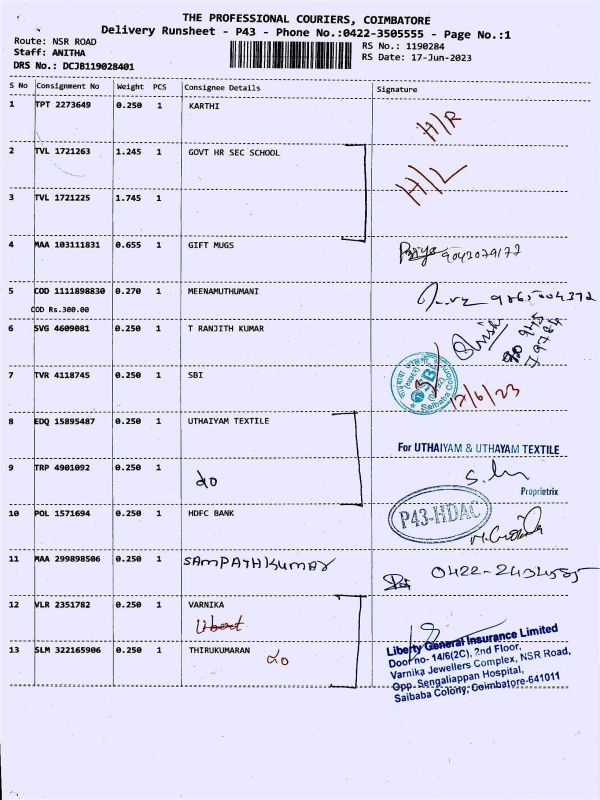 THE PROFESSIONAL COURIERS, COIMBATORE
Delivery Runsheet - P43 - Phone No.:0422-3505555 - Page No.:1
Route: NSR ROAD
RS No.: 1190284
Staff: ANITHA
RS Date: 17-Jun-2023
DRS No.: DCJB119028401
S No Consignment No Weight PCS Consignee Details Signature
1 TPT 2273649 0.250 1 KARTHI H/R
2 TVL 1721263 1.245 1 GOVT HR SEC SCHOOL H/L
3 TVL 1721225 1.745 1
4 MAA 103111831 0.655 1 GIFT MUGS Priya 9043079177
5 COD 1111898830 0.270 1 MEENAMUTHUMANI 9865004372
COD Rs.300.00
6 SVG 4609081 0.250 1 T RANJITH KUMAR
7 TVR 4118745 0.250 1 SBI SBI Saibaba Colony 17/6/23
8 EDQ 15895487 0.250 1 UTHAIYAM TEXTILE
For UTHAIYAM & UTHAYAM TEXTILE
9 TRP 4901092 0.250 1 do
Proprietrix
10 POL 1571694 0.250 1 HDFC BANK P43-HDAC
11 MAA 299898506 0.250 1 SAMPATHKUMAR 0422-2434555
12 VLR 2351782 0.250 1 VARNIKA
13 SLM 322165906 0.250 1 THIRUKUMARAN do
Liberty General Insurance Limited
Door no- 14/6(2C), 2nd Floor,
Varnika Jewellers Complex, NSR Road,
Opp. Sengaliappan Hospital,
Saibaba Colony, Coimbatore-641011